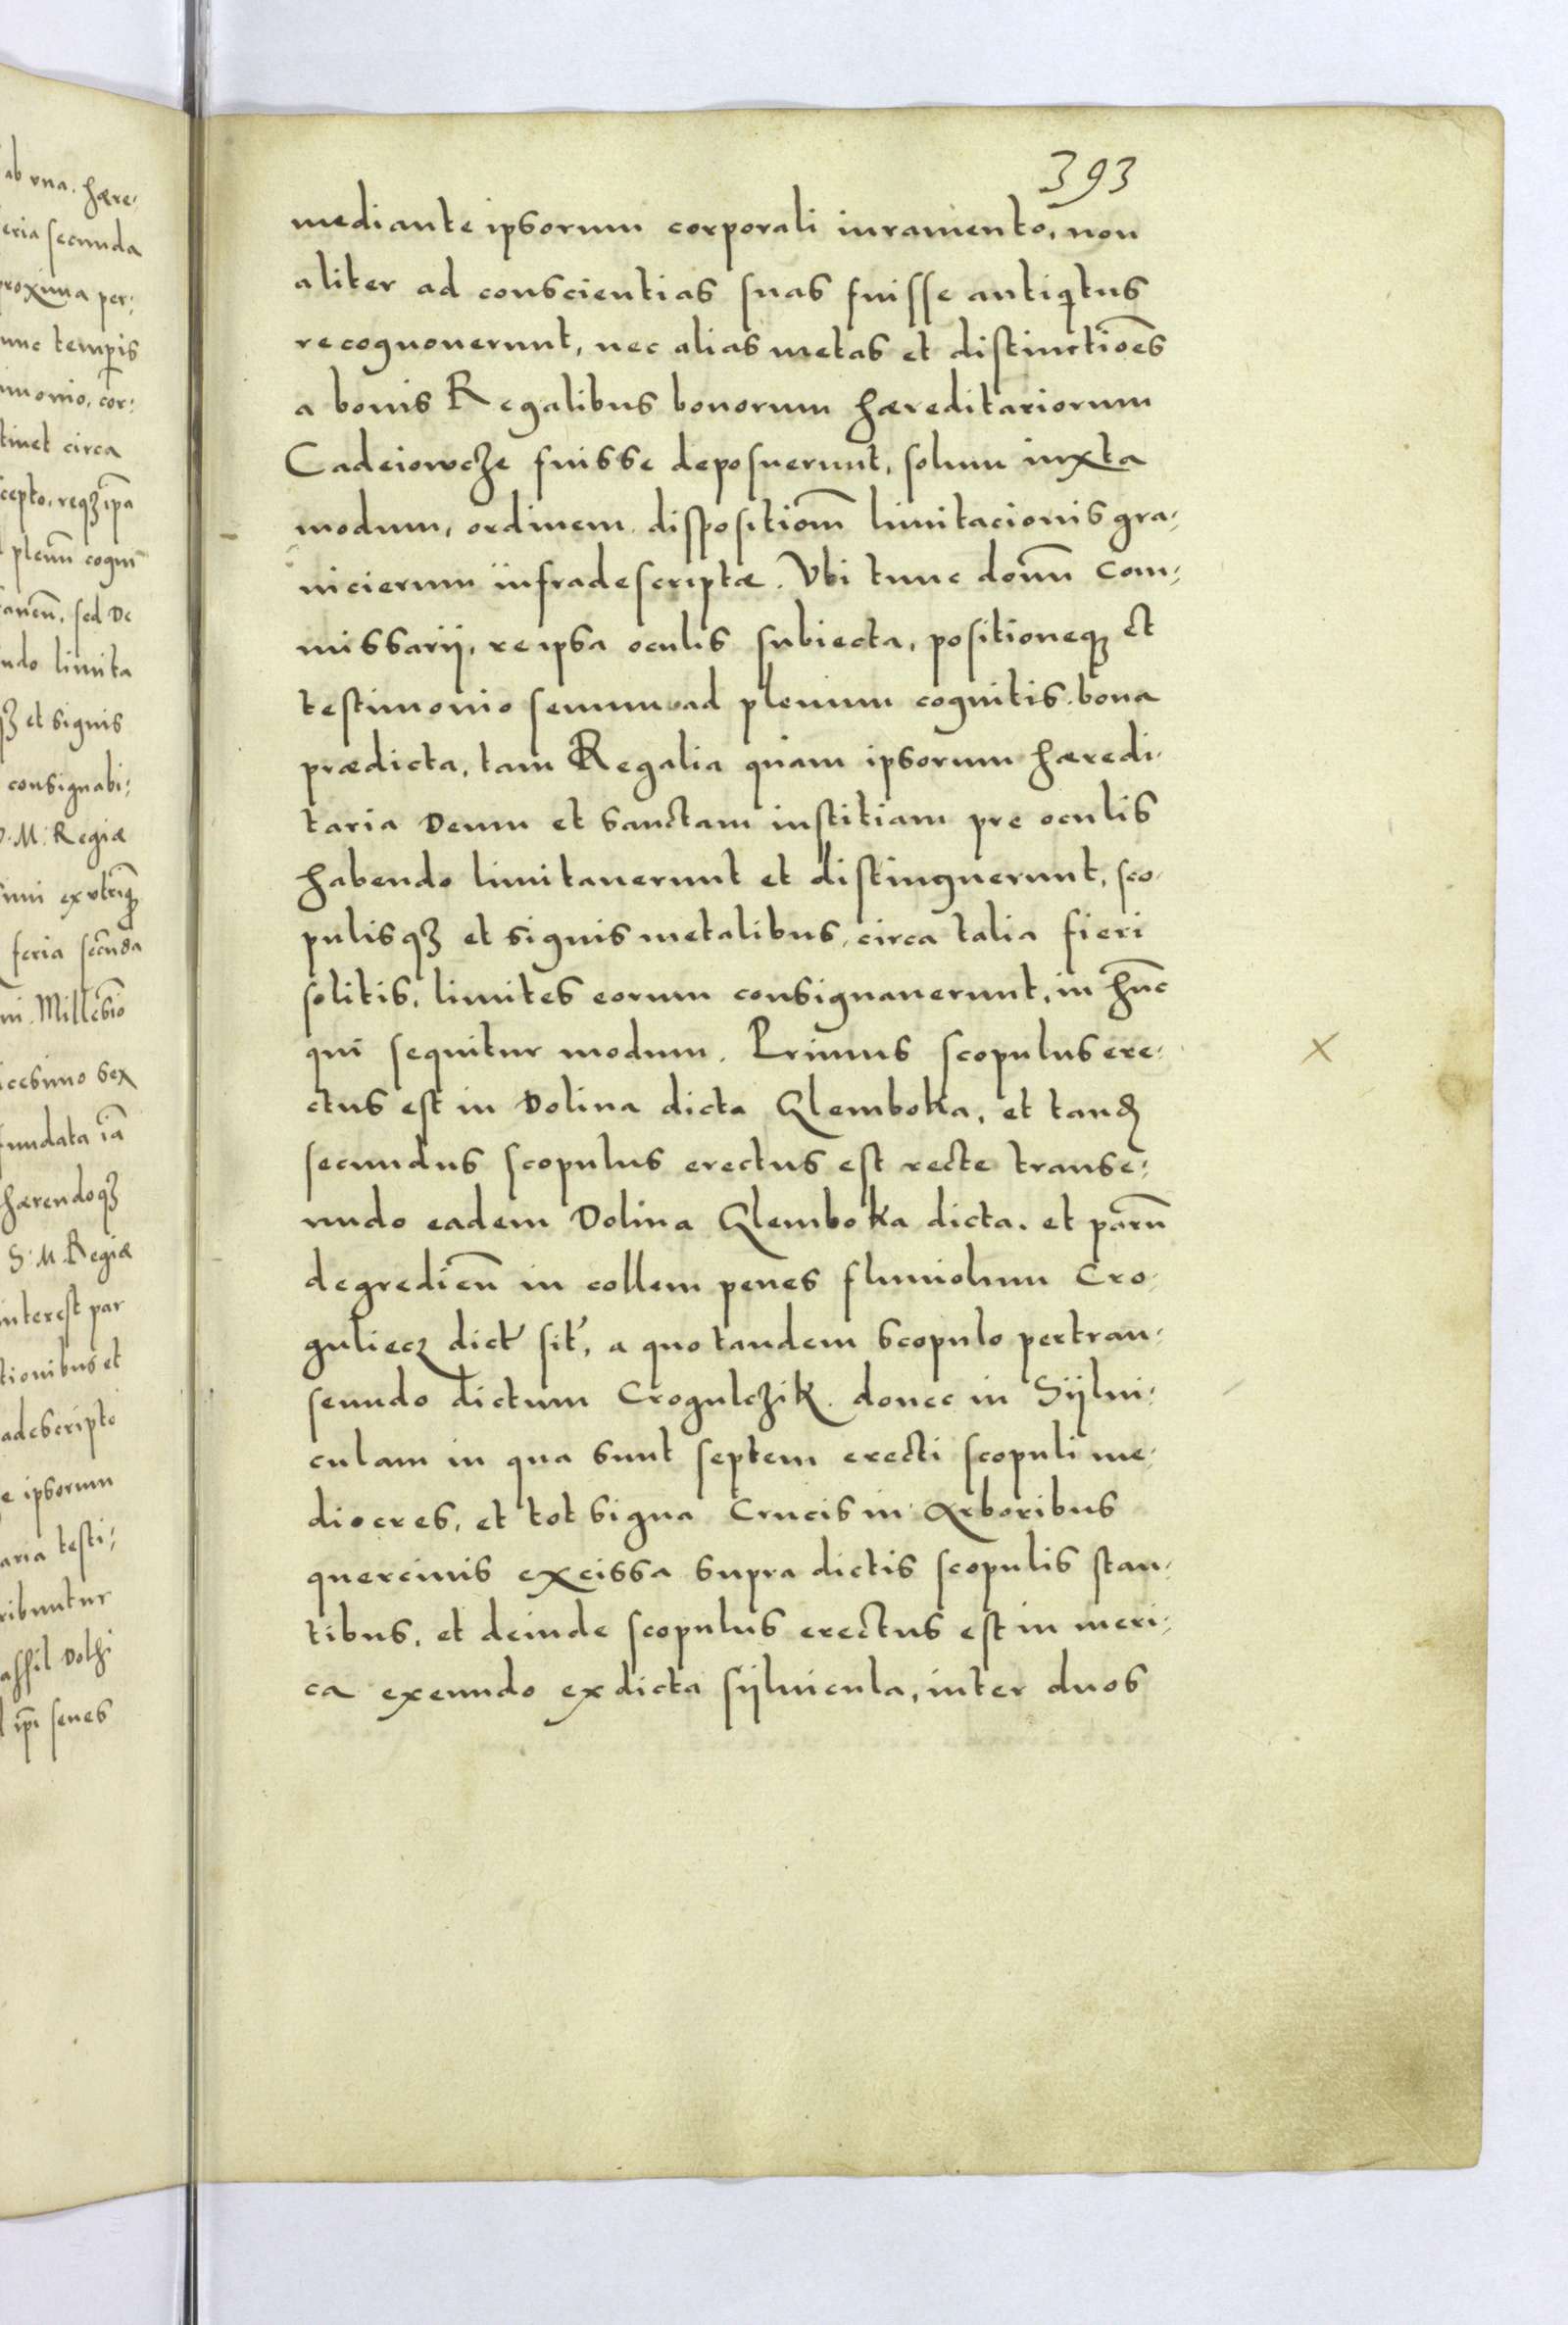 ab vna. hære-
eria secunda
proxima per-
unc temp̃is
imonio, cor-
tinet circa
cepto, reqꝫ ip̃a
plenũ cogni
anẽn, sed De
ndo limita
qꝫ et signis
consignabi-
M. Regiæ
imi ex utriqꝫ
feria secũda
ni. Millesĩo
icesimo sex
fundata iã
hærendoqꝫ
S. M. Regiæ
interest par
tionibus et
adescripto
e ipsorum
aria testi-
ribuntur
assil Dolhi
ip̃i senes
393
mediante ipsorum corporali iuramento, non
aliter ad conscientias suas fuisse antiq̃tus
recognouerunt, nec alias metas et distinctiões
a bonis Regalibus bonorum hæreditariorum
Cadeiowcze fuisse deposuerunt, solum iuxta
modum, ordinem dispositiom̃ limitacionis gra-
nicierum infradescriptæ. Vbi tunc domñ Com-
missarii, re ipsa oculis subiecta, positioneqꝫ et
testimonio senum ad plenum cognitis bona
prædicta, tam Regalia quam ipsorum hæredi-
taria Deum et sanctam iustitiam pre oculis
habendo limitauerunt et distinguerunt, sco-
pulisqꝫ et signis metalibus, circa talia fieri
solitis, limites eorum consignauerunt, in hũc
qui sequitur modum. Primus scopulus ere-
ctus est in Dolina dicta Glemboka, et tandẽ
secundus scopulus erectus est recte transe-
undo eadem Dolina Glemboka dicta. et parũ
degrediẽn in collem penes fluuiolum Cro-
guliecz dict̃ sit̃, a quo tandem scopulo pertran-
seundo dictum Crogulczik. donec in Sijlui-
culam in qua sunt septem erecti scopuli me-
diocres, et tot signa Crucis in Arboribus
quercinis excissa supra dictis scopulis stan-
tibus, et deinde scopulus erectus est in meri-
ca exeundo ex dicta sijluicula, inter duos